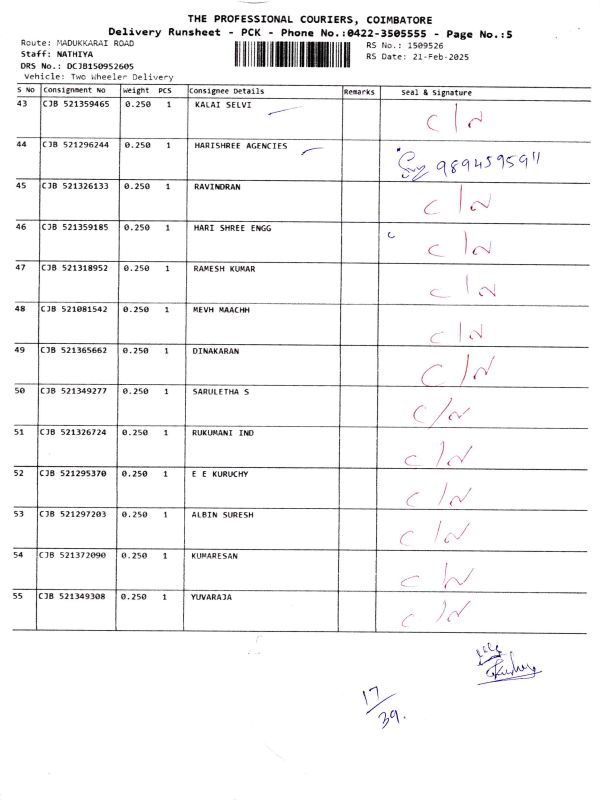 THE PROFESSIONAL COURIERS, COIMBATORE
Delivery Runsheet - PCK - Phone No.:0422-3505555 - Page No.:5
Route: MADUKKARAI ROAD
RS No.: 1509526
Staff: NATHIYA
RS Date: 21-Feb-2025
DRS No.: DCJB150952605
Vehicle: Two Wheeler Delivery
S No Consignment No Weight PCS Consignee Details Remarks Seal & Signature
43 CJB 521359465 0.250 1 KALAI SELVI
44 CJB 521296244 0.250 1 HARISHREE AGENCIES
45 CJB 521326133 0.250 1 RAVINDRAN
46 CJB 521359185 0.250 1 HARI SHREE ENGG
47 CJB 521318952 0.250 1 RAMESH KUMAR
48 CJB 521081542 0.250 1 MEVH MAACHH
49 CJB 521365662 0.250 1 DINAKARAN
50 CJB 521349277 0.250 1 SARULETHA S
51 CJB 521326724 0.250 1 RUKUMANI IND
52 CJB 521295370 0.250 1 E E KURUCHY
53 CJB 521297203 0.250 1 ALBIN SURESH
54 CJB 521372090 0.250 1 KUMARESAN
55 CJB 521349308 0.250 1 YUVARAJA
17
39.